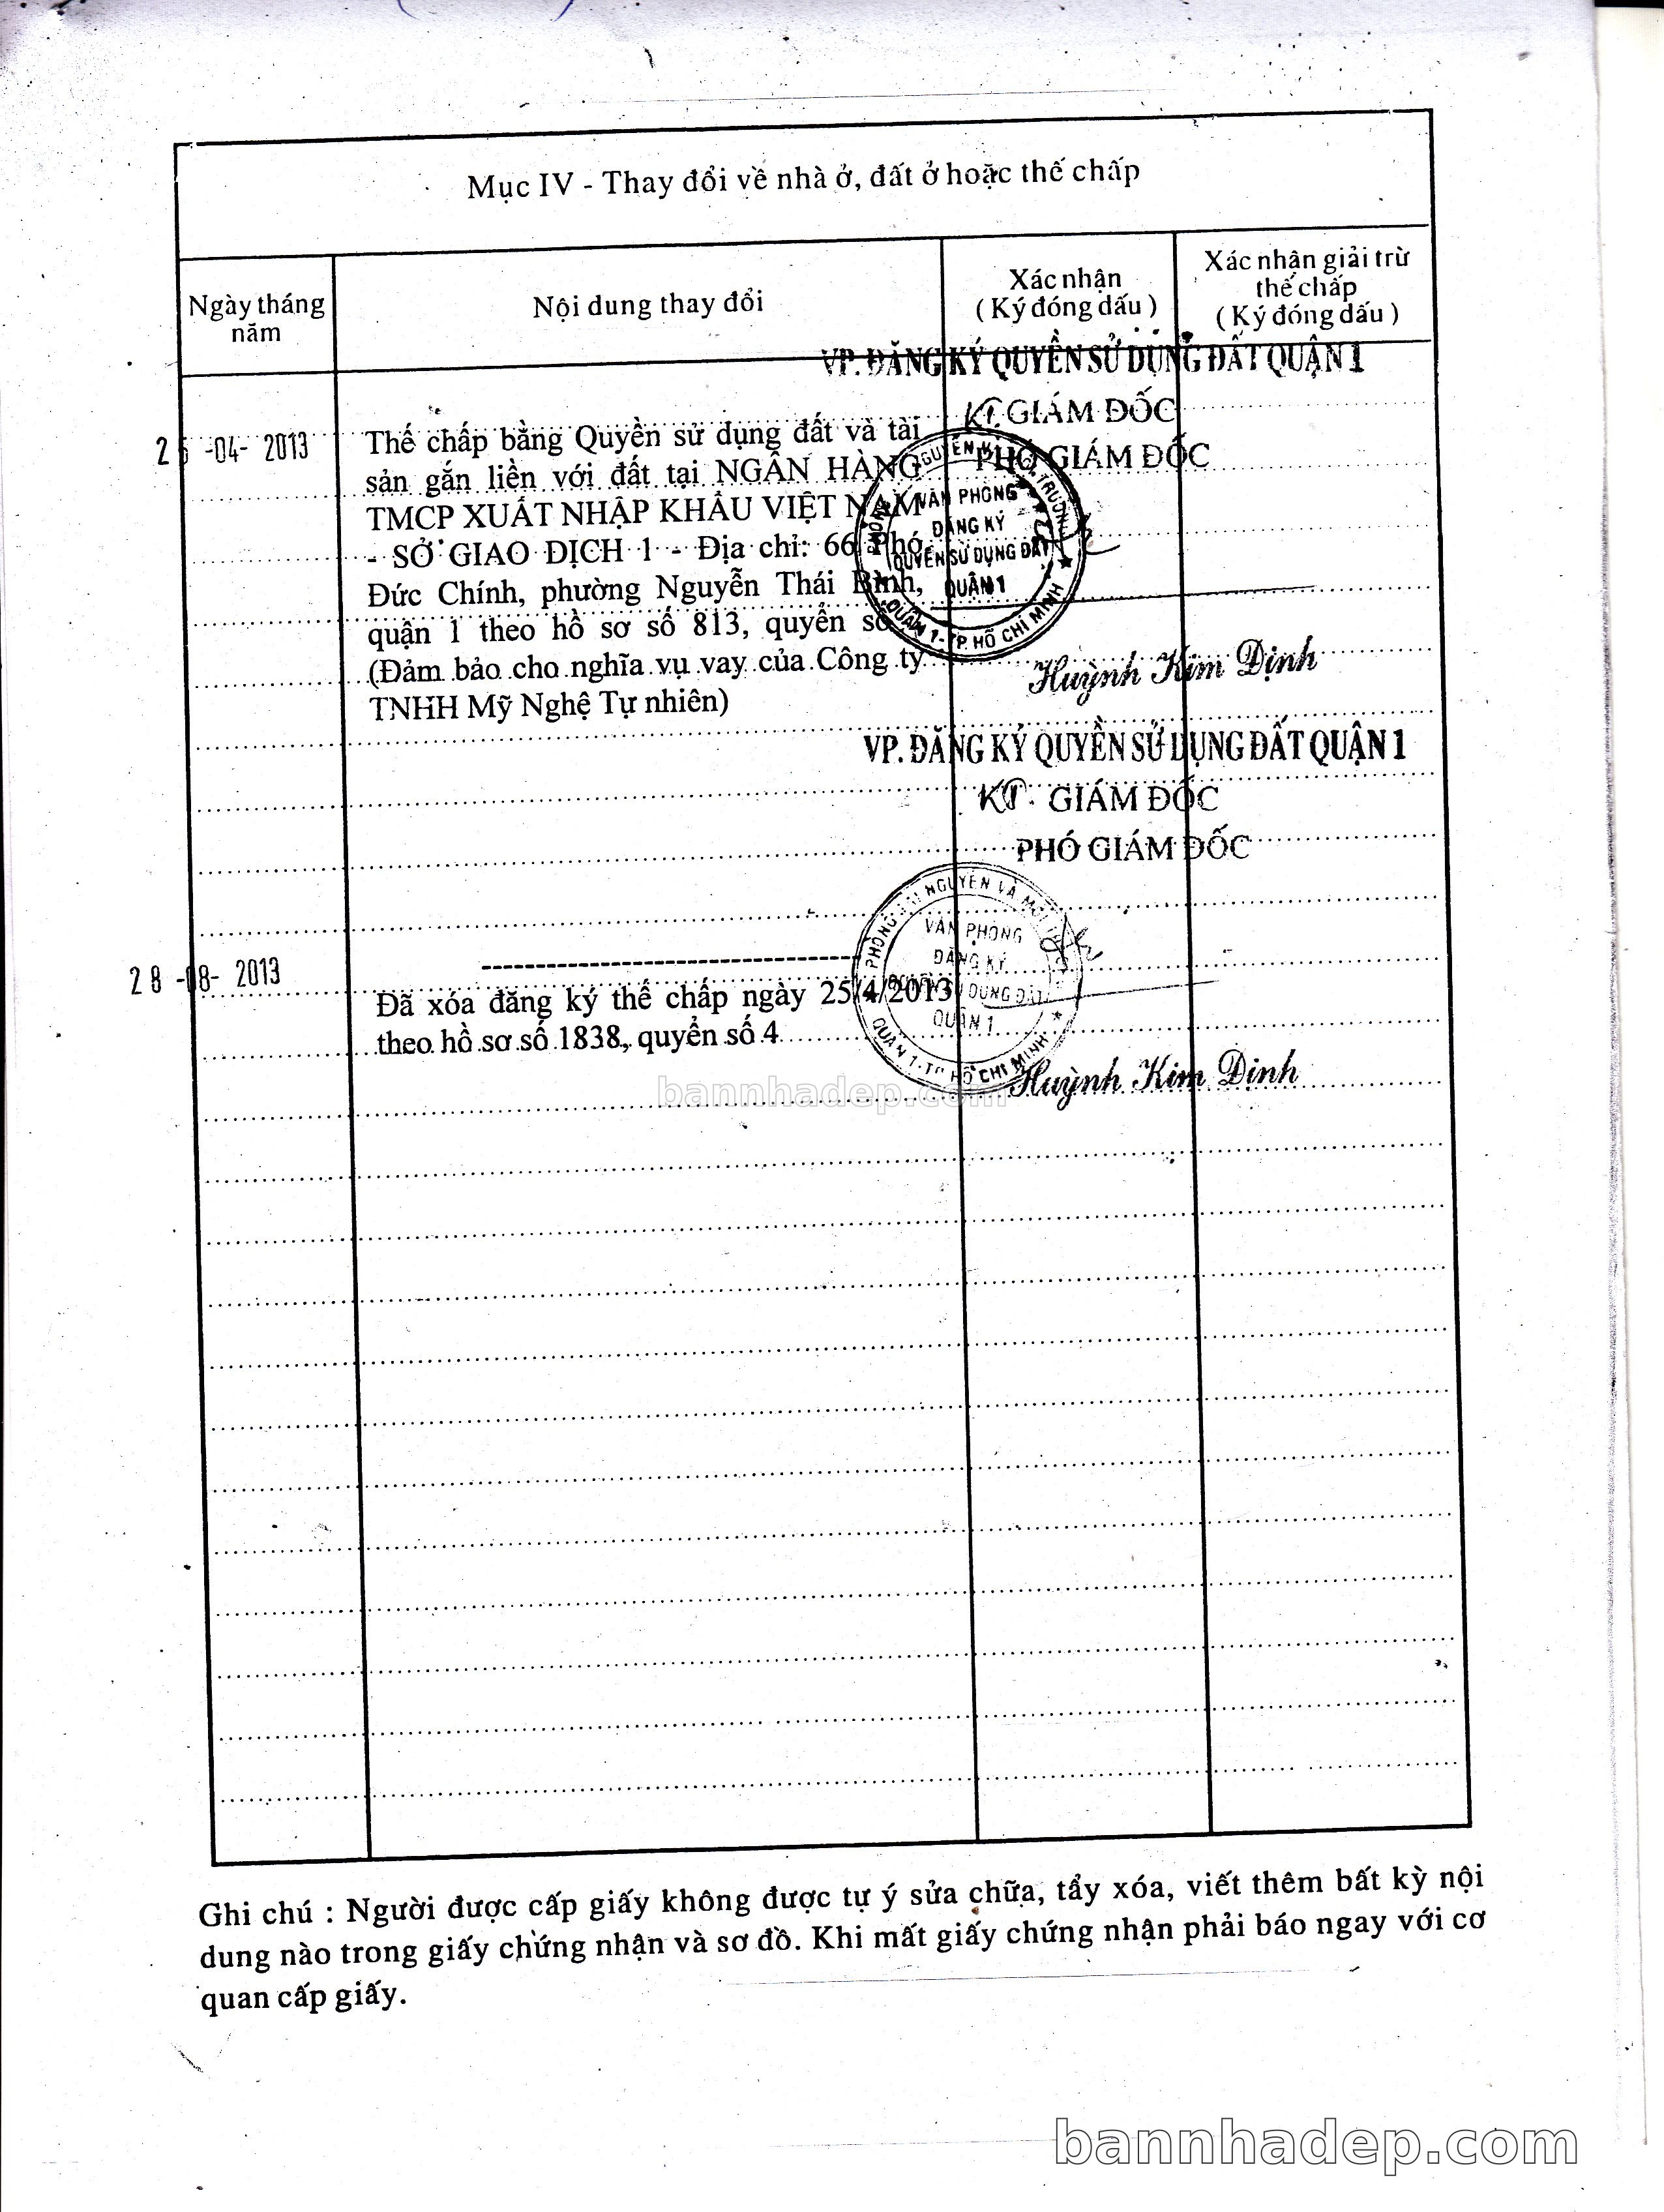 Mục IV - Thay đổi về nhà ở, đất ở hoặc thế chấp
Ngày tháng
năm
Nội dung thay đổi
Xác nhận
( Ký đóng dấu )
Xác nhận giải trừ
thế chấp
( Ký đóng dấu )
VP. ĐĂNG KÝ QUYỀN SỬ DỤNG ĐẤT QUẬN 1
KT. GIÁM ĐỐC
PHÓ GIÁM ĐỐC
-04- 2013
Thế chấp bằng Quyền sử dụng đất và tài
sản gắn liền với đất tại NGÂN HÀNG
TMCP XUẤT NHẬP KHẨU VIỆT NAM
- SỞ GIAO DỊCH 1 - Địa chỉ: 66 Phó
Đức Chính, phường Nguyễn Thái Bình,
quận 1 theo hồ sơ số 813, quyển số
(Đảm bảo cho nghĩa vụ vay của Công ty
TNHH Mỹ Nghệ Tự nhiên)
VĂN PHÒNG
ĐĂNG KÝ
QUYỀN SỬ DỤNG ĐẤT
QUẬN 1
QUẬN 1 - TP. HỒ CHÍ MINH
Huỳnh Kim Định
VP. ĐĂNG KÝ QUYỀN SỬ DỤNG ĐẤT QUẬN 1
KT. GIÁM ĐỐC
PHÓ GIÁM ĐỐC
28 -08- 2013
Đã xóa đăng ký thế chấp ngày 25/4/2013
theo hồ sơ số 1838, quyển số 4
PHÒNG TÀI NGUYÊN VÀ MÔI
VĂN PHÒNG
ĐĂNG KÝ
DỤNG ĐẤT
QUẬN 1
QUẬN 1 - TP HỒ CHÍ MINH
Huỳnh Kim Định
bannhadep.com
Ghi chú : Người được cấp giấy không được tự ý sửa chữa, tẩy xóa, viết thêm bất kỳ nội
dung nào trong giấy chứng nhận và sơ đồ. Khi mất giấy chứng nhận phải báo ngay với cơ
quan cấp giấy.
bannhadep.com